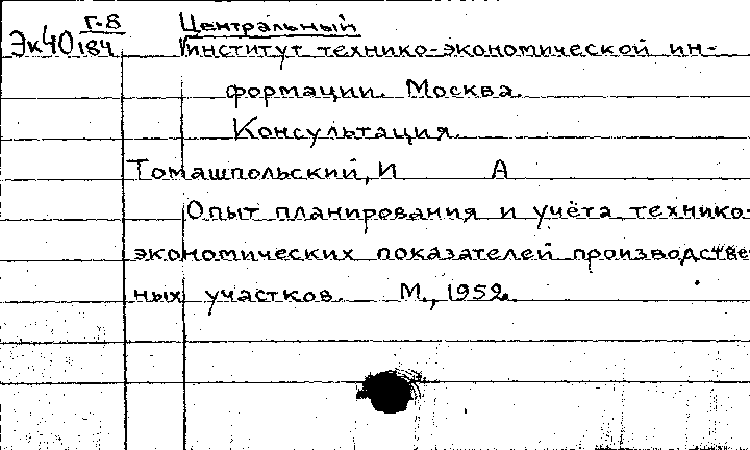 Г-8 Центральный
Эк40 184 Институт технико-экономической ин-
формации. Москва.
Консультация.
Томашпольский, И А
Опыт планирования и учёта технико-
экономических показателей производстве
ных участков. М., 1952.